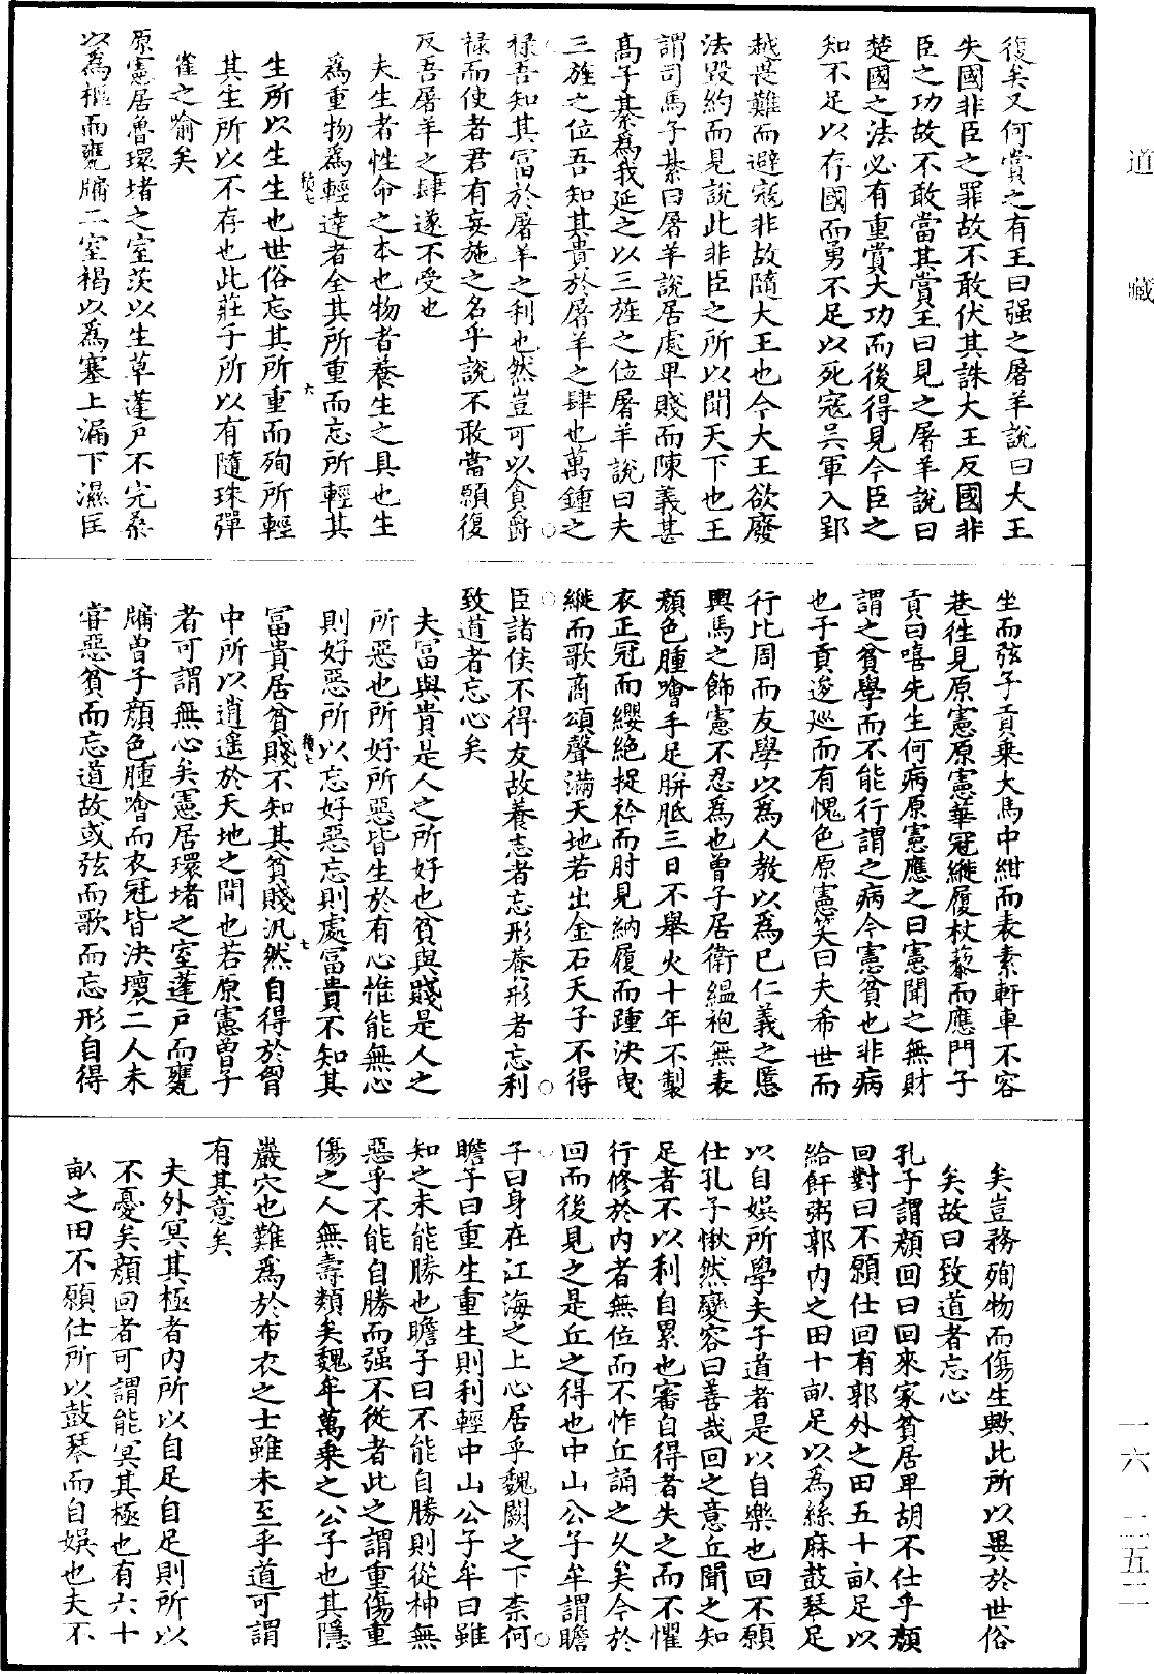 道藏
一六 二五二
復矣又何賞之有王曰强之屠羊說曰大王
失國非臣之罪故不敢伏其誅大王反國非
臣之功故不敢當其賞王曰見之屠羊說曰
楚國之法必有重賞大功而後得見今臣之
知不足以存國而勇不足以死寇吳軍入郢
越畏難而避寇非故隨大王也今大王欲廢
法毀約而見說此非臣之所以聞天下也王
謂司馬子綦曰屠羊說居處卑賤而陳義甚
高子綦爲我延之以三旌之位屠羊說曰夫
三旌之位吾知其貴於屠羊之肆也萬鍾之
祿吾知其富於屠羊之利也然豈可以貪爵
祿而使者君有妄施之名乎說不敢當願復
反吾屠羊之肆遂不受也
夫生者性命之本也物者養生之具也生
爲重物爲輕達者全其所重而忘所輕其
生所以生生也世俗忘其所重而殉所輕
其生所以不存也此莊子所以有隨珠彈
雀之喻矣
原憲居魯環堵之室茨以生草蓬戶不完桑
以爲樞而甕牖二室褐以爲塞上漏下濕匡
坐而弦子貢乘大馬中紺而表素軒車不容
巷徃見原憲原憲華冠縰履杖藜而應門子
貢曰嘻先生何病原憲應之曰憲聞之無財
謂之貧學而不能行謂之病今憲貧也非病
也子貢逡巡而有愧色原憲笑曰夫希世而
行比周而友學以爲人教以爲已仁義之慝
輿馬之飾憲不忍爲也曾子居衛緼袍無表
顏色腫噲手足胼胝三日不舉火十年不製
衣正冠而纓絶捉衿而肘見納履而踵決曳
縰而歌商頌聲滿天地若出金石天子不得
臣諸侯不得友故養志者忘形養形者忘利
致道者忘心矣
夫富與貴是人之所好也貧與賤是人之
所惡也所好所惡皆生於有心惟能無心
則好惡所以忘好惡忘則處富貴不知其
富貴居貧賤不知其貧賤汎然自得於胷
中所以逍遥於天地之間也若原憲曾子
者可謂無心矣憲居環堵之室蓬戶而甕
牖曾子顏色腫噲而衣冠皆決壞二人未
甞惡貧而忘道故或弦而歌而忘形自得
矣豈務殉物而傷生歟此所以異於世俗
矣故曰致道者忘心
孔子謂顏回曰回來家貧居卑胡不仕乎顏
回對曰不願仕回有郭外之田五十畝足以
給飦粥郭內之田十畝足以爲絲麻鼓琴足
以自娛所學夫子道者是以自樂也回不願
仕孔子愀然變容曰善哉回之意丘聞之知
足者不以利自累也審自得者失之而不懼
行修於內者無位而不怍丘誦之久矣今於
回而後見之是丘之得也中山公子牟謂瞻
子曰身在江海之上心居乎魏闕之下柰何
瞻子曰重生重生則利輕中山公子牟曰雖
知之未能勝也瞻子曰不能自勝則從神無
惡乎不能自勝而强不從者此之謂重傷重
傷之人無壽類矣魏牟萬乘之公子也其隱
巖穴也難爲於布衣之士雖未至乎道可謂
有其意矣
夫外冥其極者內所以自足自足則所以
不憂矣顏回者可謂能冥其極也有六十
畝之田不願仕所以鼓琴而自娛也夫不